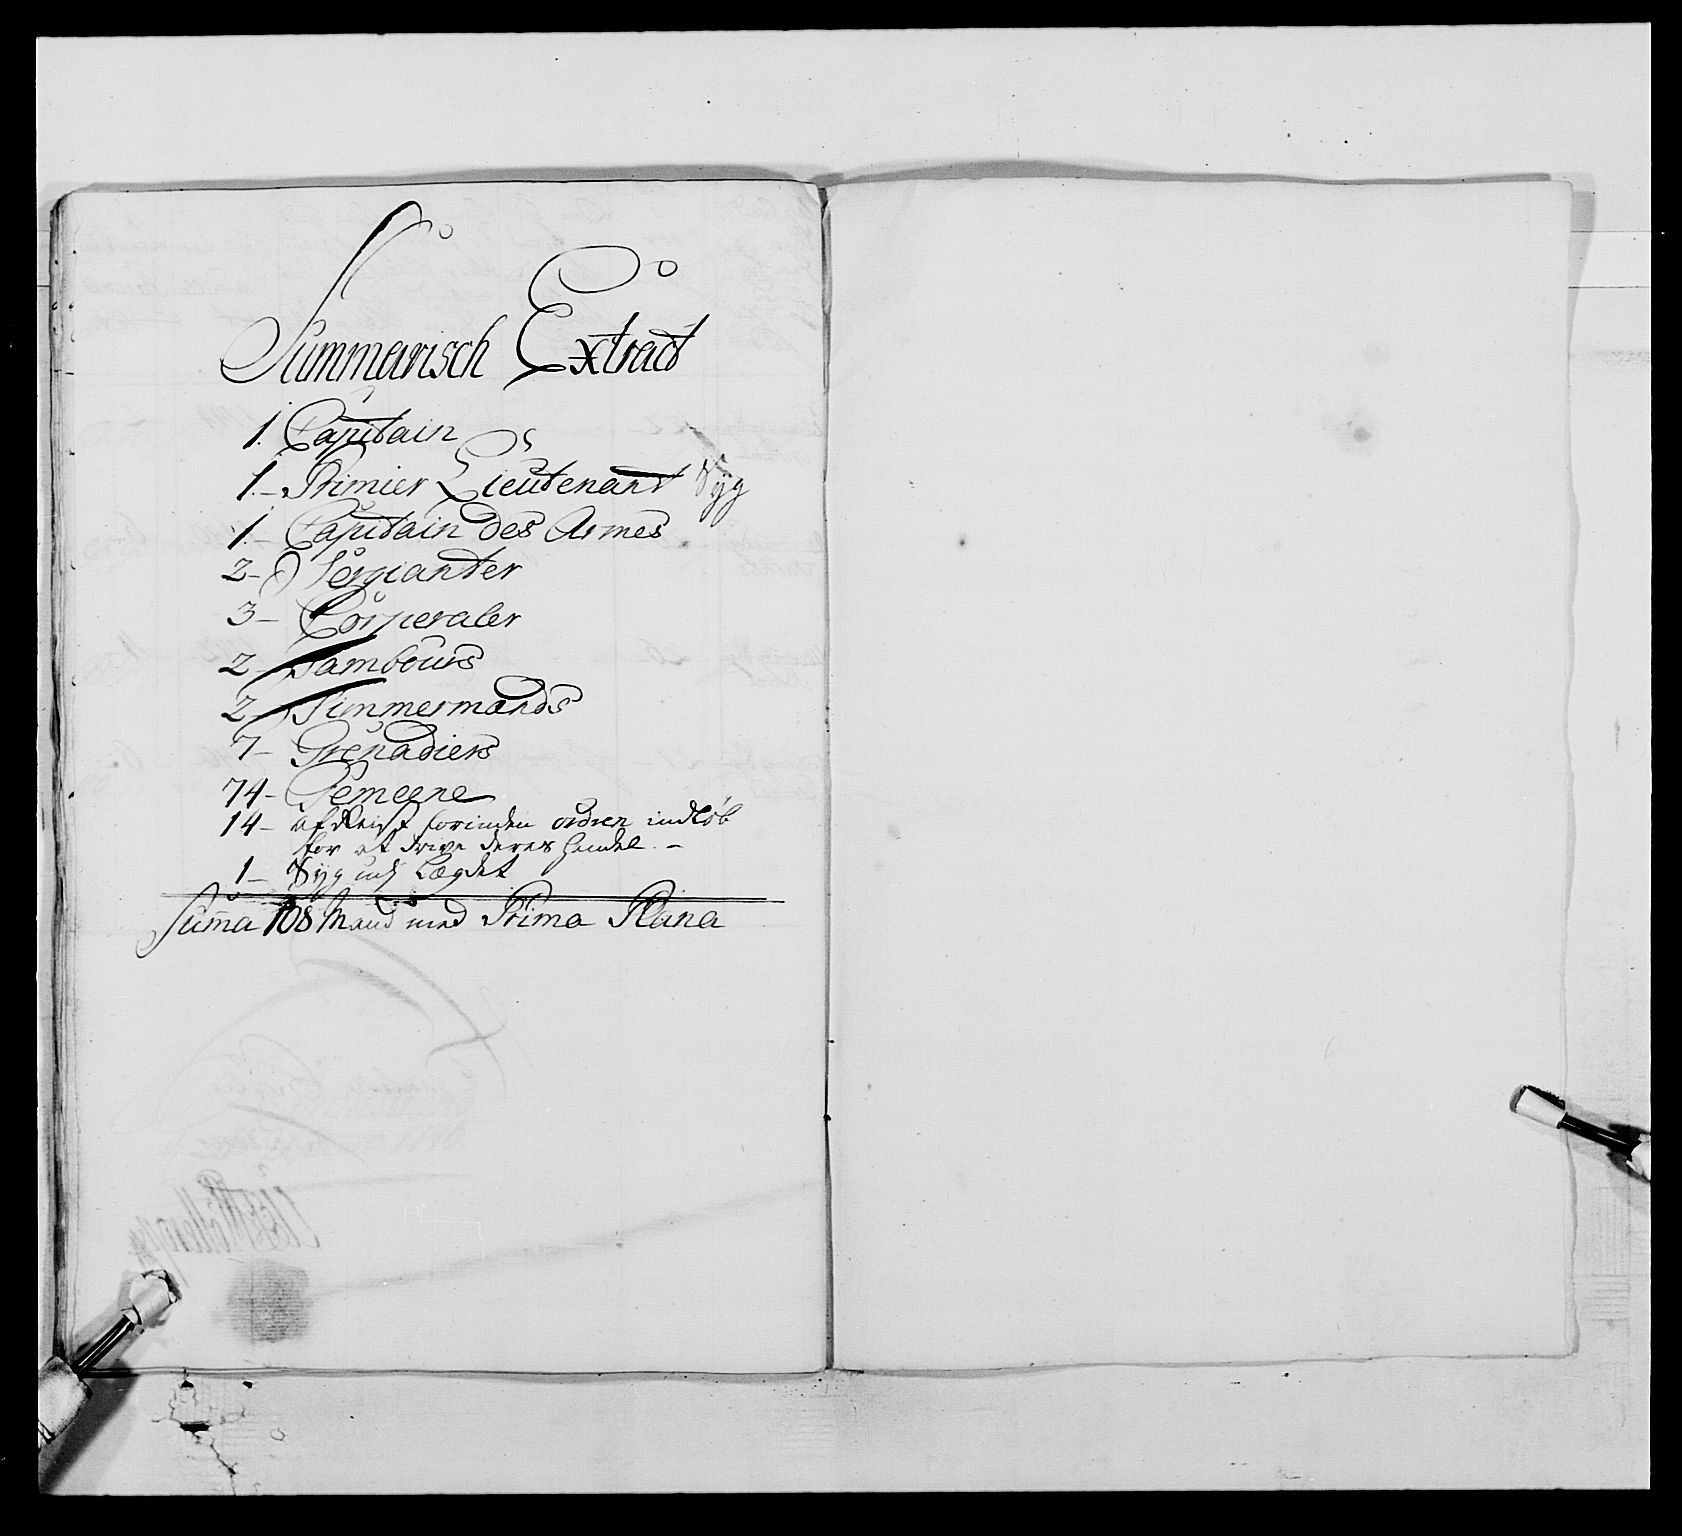 Summarisch Extract
1. Capitain
1.- Primier Lieutenant Syg
1.- Capitain des Armes
2- Sergianter
3- Corperaler
2- Tambours
2- Timmermænds
7- Grenadiers
74- Gemeene
14- afReist forinden ordren indløb
for at drive deres Handel. -
1- Syg udj Lægdet
Sum̅a 108 Mand med Prima Plana